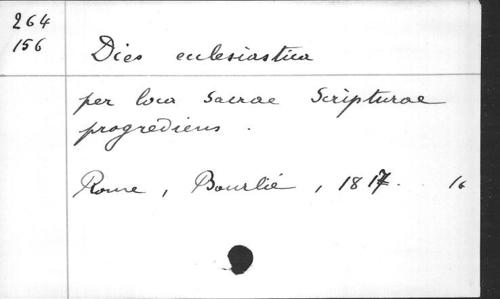 264
156
Dies ecclesiastica
per loca Sacrae Scripturae
progrediens.
Rome, Bourlié, 1817. 16